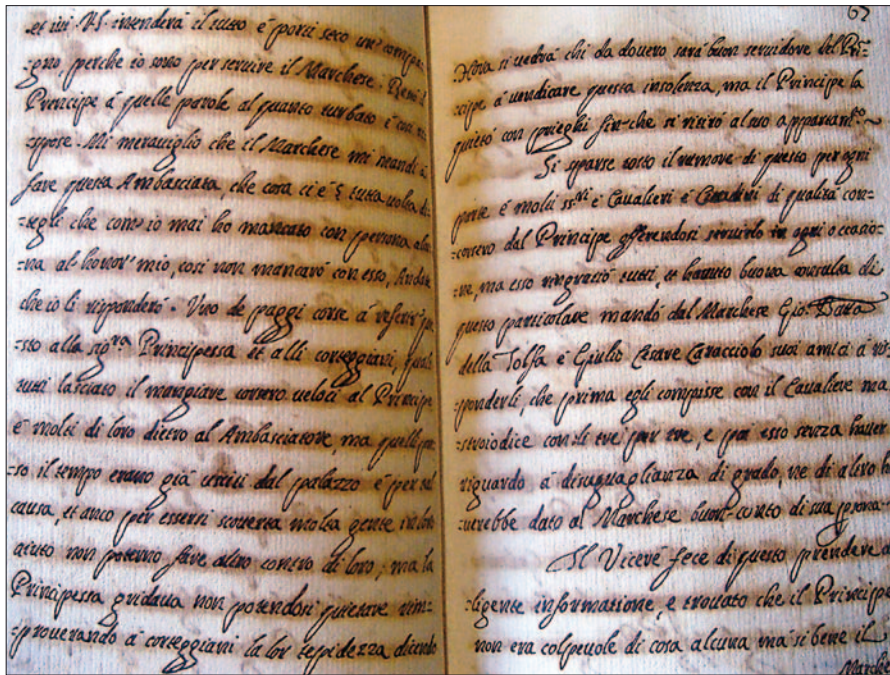 et ivi V.S. intenderà il tutto è porti seco un' compa-
-gno, perche io sono per servire il Marchese. Restò il
Prencipe à quelle parole al quanto turbato è così ris-
-spose. Mi meraviglio che il Marchese mi mandi à
fare questa Ambasciata, che cosa ci è tutta volta di-
-tegli che com' io mai ho mancato con persona alcu-
-na al honor' mio, così non mancarò con esso, Andate
che io li risponderò. Uno de paggi corse à referir' que-
-sto alla sig.ra Principessa et alli corteggiani, quali
tutti lasciato il mangiare corsero veloci al Principe
è molti di loro dietro al Ambasciatore, ma quelli
-so il tempo erano già usciti dal palazzo è per tal
causa, et anco per essersi scoverta molta gente in loro
aiuto non poterno fare altro contro di loro; ma la
Principessa gridava non potendosi quietare rim-
-proverando à corteggiani la lor tepidezza dicendo
62
Hora si vedrà chi da dovero sarà buon servidore del Pri-
-cipe à vindicare questa insolenza, ma il Principe la
quietò con prieghi fin-che si ritirò al suo appartam.to
Si sparse tosto il rumore di questo per ogni
parte è molti ss.ri è Cavalieri è Cittadini di qualità con-
-corsero dal Principe offerendosi servirlo in ogni occasio-
-ne, ma esso ringratiò tutti, et havuto buona consulta di
questo particolare mandò dal Marchese Gio: Batta
della Tolfa è Giulio Cesare Caracciolo suoi amici à ris-
-ponderli, che prima egli compisse con il Cavaliere ma
-stroiodice con li tre per tre, e poi esso senza haver
riguardo à disuguaglianza di grado, ne di altro h
-averebbe dato al Marchese buon conto di sua persona
Il Vicerè fece di questo prendere
-ligente informatione, e trovato che il Principe
non era colpevole di cosa alcuna ma si bene il
Marche